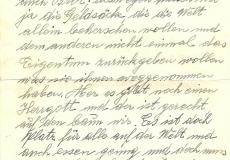 ja die Geldsäcke, die die Welt
allein beherschen wollen und
dem anderen nicht einmal das
Eigentum zurückgeben wollen
was sie ihnen weggenommen
haben. Aber es gibt noch einen
Herrgott und der ist gerecht
auf den baun wir. Es ist doch
Platz für alle auf der Welt und
auch essen genug und doch muss